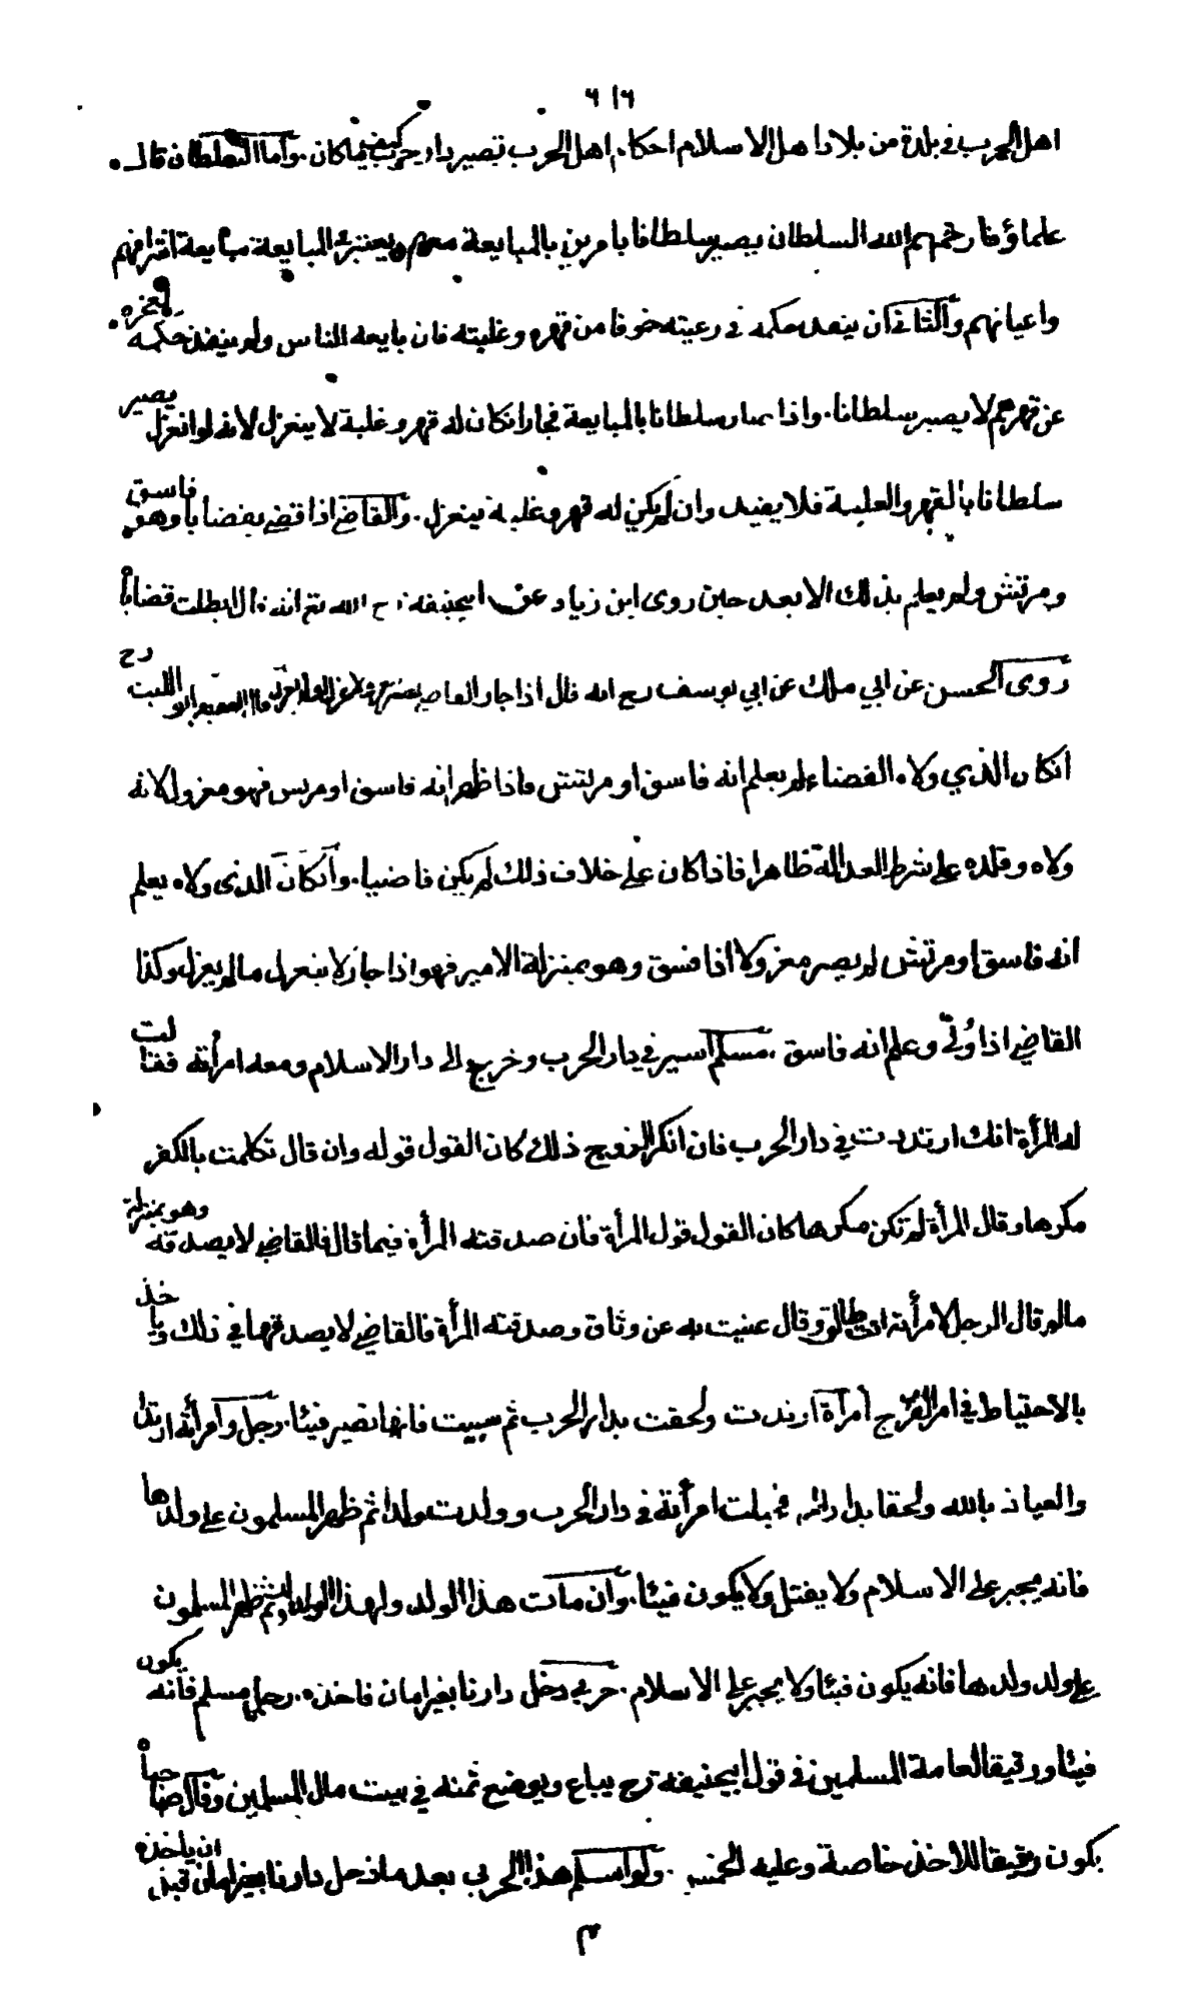 ٦١٦
اهل الحرب في بلدة من بلاد اهل الاسلام احكام اهل الحرب تصير دار حرب كيف ما كان. وأما السلطان قال
علماؤنا رحمهم الله السلطان يصير سلطانا بامرين بالمبايعة معهم ويعتبر المبايعة مبايعة اشرافهم
واعيانهم والثاني ان ينفذ حكمه في رعيته خوفا من قهره وغلبته فان بايعه الناس ولم ينفذ حكمه لعجزه
عن قهرهم لا يصير سلطانا. واذا صار سلطانا بالمبايعة فجار انكان له قهر وغلبة لا ينعزل لانه لو انعزل يصير
سلطانا بالقهر والغلبة فلا يفيد وان لم يكن له قهر وغلبة ينعزل. والقاضي اذا قضى بقضايا وهو فاسق
ومرتش ولم يعلم بذلك الا بعد حين روى ابن زياد عن ابيحنيفه رح الله تع انه قال ابطلت قضاياه
روى الحسن عن ابي ملك عن ابي يوسف رح الله قال اذا جار القاضي الفقيه ابو الليث رح
انكان الذي ولاه القضاء لم يعلم انه فاسق او مرتش فاذا ظهر انه فاسق او مرتش فهو معزول لانه
ولاه وقلده على شرط العدالة ظاهرا فاذا كان على خلاف ذلك لم يكن قاضيا. وانكان الذى ولاه يعلم
انه فاسق او مرتش لم يصر معزولا اذا فسق وهو بمنزلة الامير فهو اذا جار لا ينعزل ما لم يعزل وكذا
القاضي اذا وُلّي وعلم انه فاسق. مسلم اسير في دار الحرب وخرج الى دار الاسلام ومعه امرأته فقالت
له المرأة انك ارتددت في دار الحرب فان انكر الزوج ذلك كان القول قوله وان قال تكلمت بالكفر
مكرها وقال المرأة لم تكن مكرها كان القول قول المرأة فان صدقته المرأة فيما قال فالقاضي لا يصدقه وهو بمنزلة
ما لو قال الرجل لامرأته انت طالق وقال عنيت به عن وثاق وصدقته المرأة فالقاضي لا يصدقها في ذلك ويأخذ
بالاحتياط في امر الفرج امرأة ارتدت ولحقت بدار الحرب ثم سبيت فانها تصير فيئا. رجل وامرأته ارتدا
والعياذ بالله ولحقا بدارهم فحبلت امرأته في دار الحرب وولدت ولدا ثم ظهر المسلمون على ولدها
فانه يجبر على الاسلام ولا يقتل ولا يكون فيئا. وان مات هذا الولد ولهذا الولد ثم ظهر المسلمون
على ولد ولدها فانه يكون فيئا ولا يجبر على الاسلام. حربي دخل دارنا بغير امان فاخذه رجل مسلم فانه يكون
فيئا ورقيقا لعامة المسلمين في قول ابيحنيفه رح يباع ويوضع ثمنه في بيت مال المسلمين وقال صاحباه
يكون رقيقا للاخذ خاصة وعليه الخمس. ولو اسلم هذا الحربي بعد ما دخل دارنا بغير امان قبل ان ياخذه